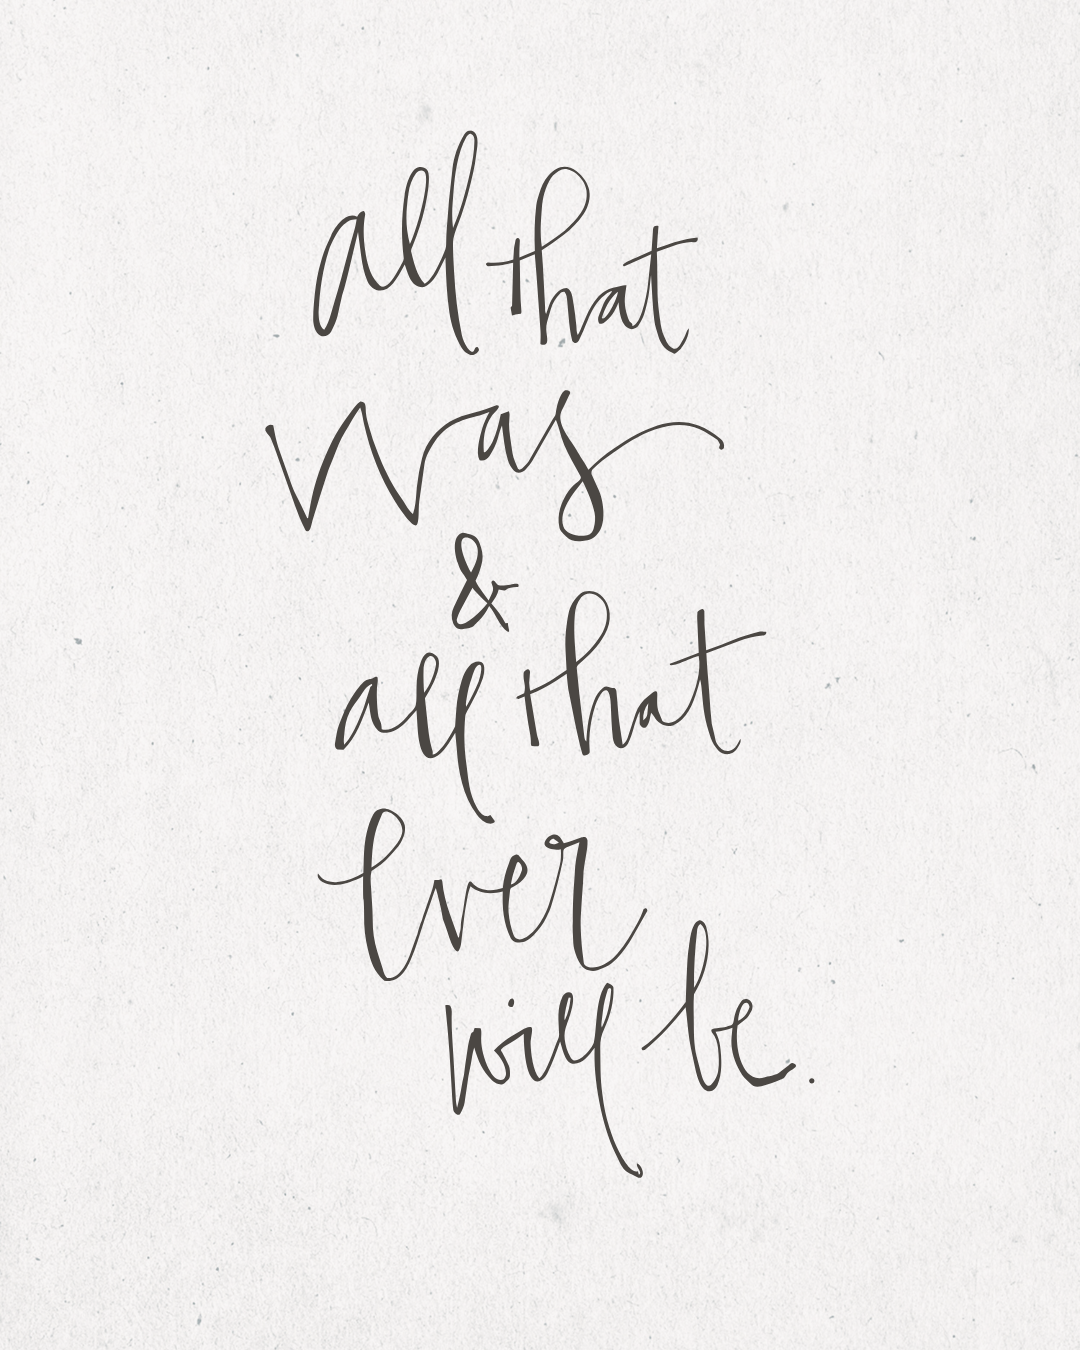 all that
was
&
all that
ever
will be.